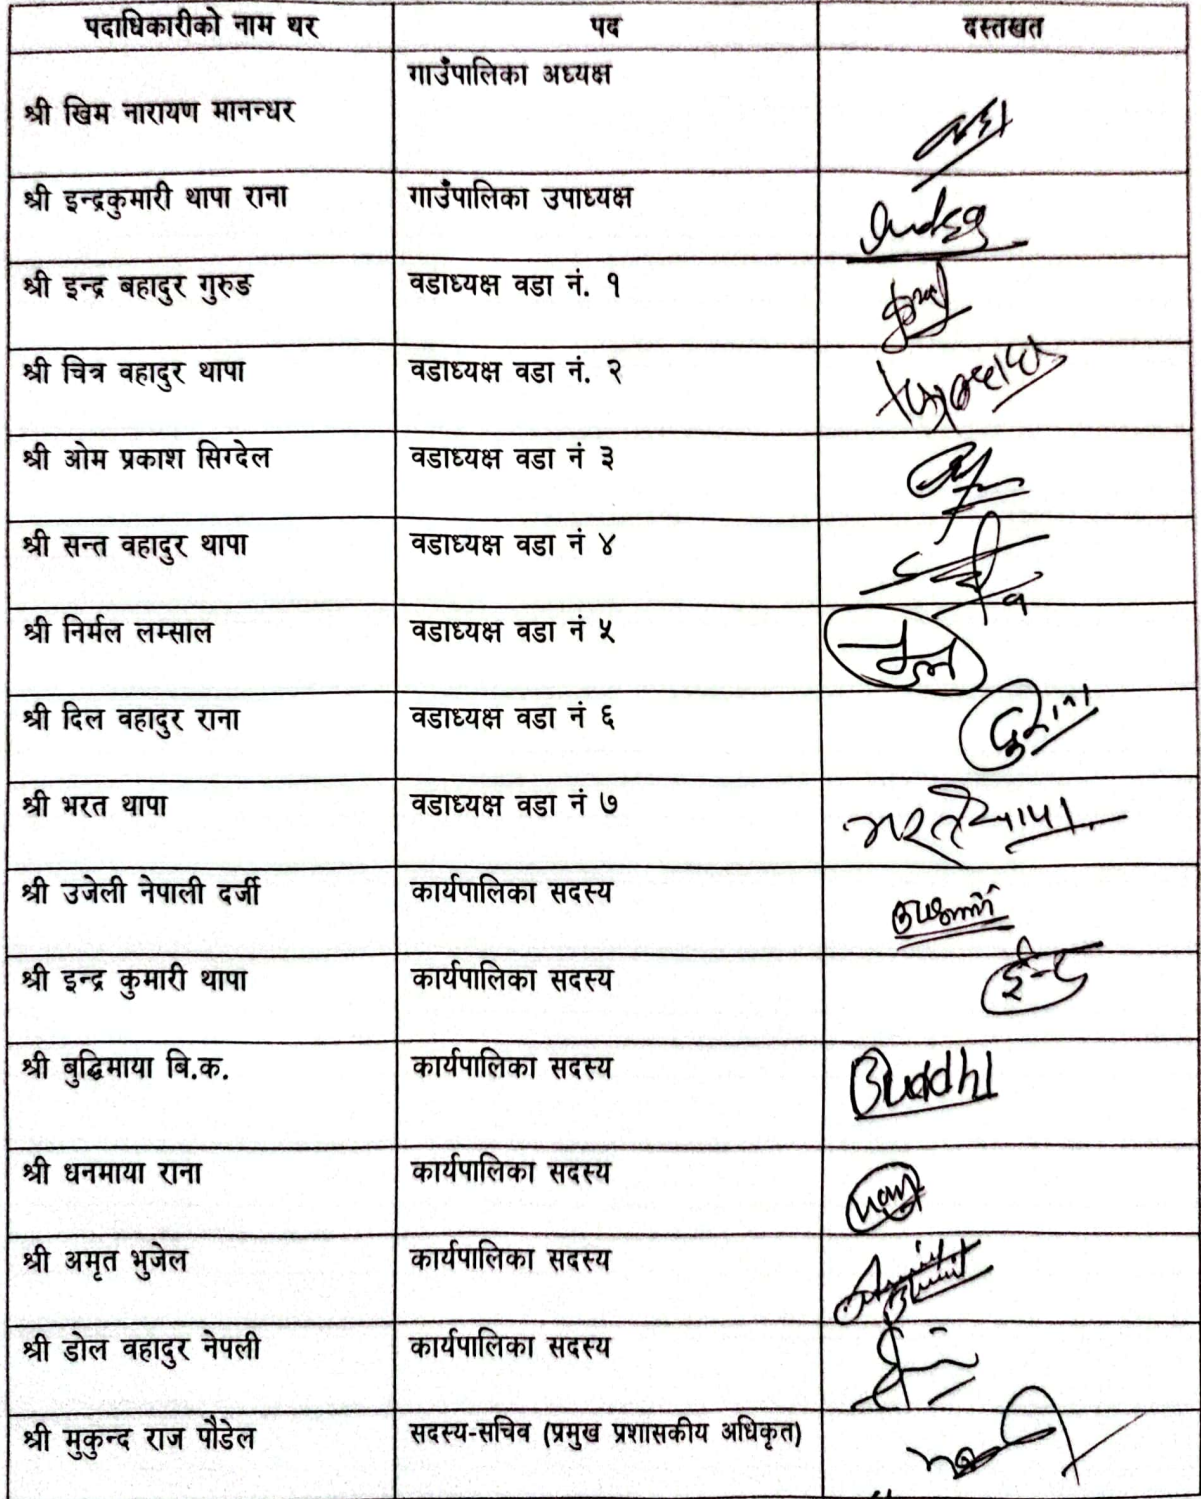 पदाधिकारीको नाम थर पद दस्तखत
गाउँपालिका अध्यक्ष
श्री खिम नारायण मानन्धर
श्री इन्द्रकुमारी थापा राना गाउँपालिका उपाध्यक्ष
श्री इन्द्र बहादुर गुरुङ वडाध्यक्ष वडा नं. १
श्री चित्र वहादुर थापा वडाध्यक्ष वडा नं. २
श्री ओम प्रकाश सिग्देल वडाध्यक्ष वडा नं ३
श्री सन्त वहादुर थापा वडाध्यक्ष वडा नं ४
श्री निर्मल लम्साल वडाध्यक्ष वडा नं ५
श्री दिल वहादुर राना वडाध्यक्ष वडा नं ६
श्री भरत थापा वडाध्यक्ष वडा नं ७ भरत थापा
श्री उजेली नेपाली दर्जी कार्यपालिका सदस्य
श्री इन्द्र कुमारी थापा कार्यपालिका सदस्य
श्री बुद्धिमाया बि.क. कार्यपालिका सदस्य Buddhi
श्री धनमाया राना कार्यपालिका सदस्य
श्री अमृत भुजेल कार्यपालिका सदस्य
श्री डोल वहादुर नेपली कार्यपालिका सदस्य
श्री मुकुन्द राज पौडेल सदस्य-सचिव (प्रमुख प्रशासकीय अधिकृत)